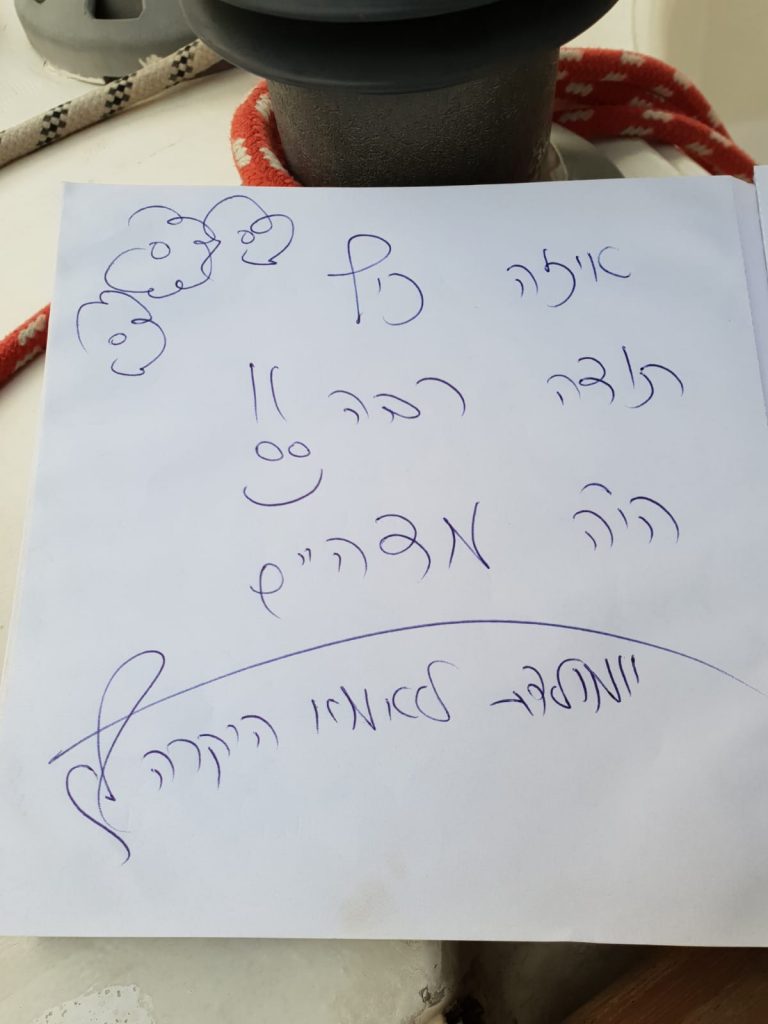 איזה כיף
תודה רבה !!
היה מדהים
יומולדת לאמא היקרה